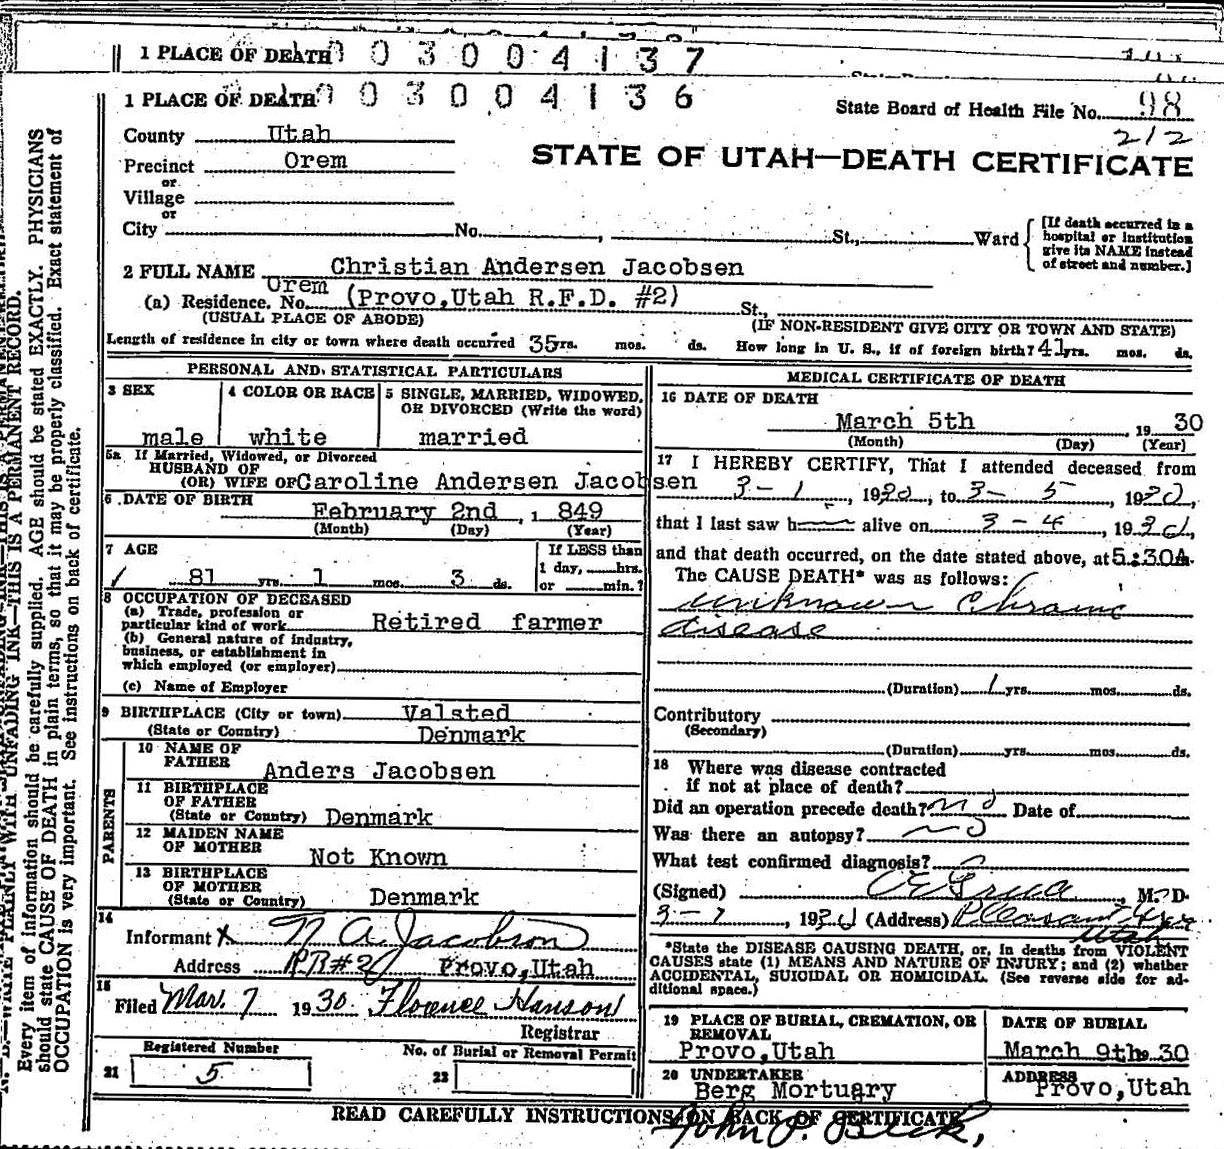 1 PLACE OF DEATH 0 0 3 0 0 4 1 3 7
1 PLACE OF DEATH 0 0 3 0 0 4 1 3 6
State Board of Health File No. 98
212
County Utah
Precinct Orem
STATE OF UTAH—DEATH CERTIFICATE
or
Village
or
City No. , St., Ward
[If death occurred in a hospital or institution give its NAME instead of street and number.]
2 FULL NAME Christian Andersen Jacobsen
(a) Residence. No. Orem (Provo,Utah R.F.D. #2) St.,
(USUAL PLACE OF ABODE) (IF NON-RESIDENT GIVE CITY OR TOWN AND STATE)
Length of residence in city or town where death occurred 35 yrs. mos. ds. How long in U. S., if of foreign birth? 41 yrs. mos. ds.
PERSONAL AND STATISTICAL PARTICULARS
3 SEX 4 COLOR OR RACE 5 SINGLE, MARRIED, WIDOWED, OR DIVORCED (Write the word)
male white married
5a If Married, Widowed, or Divorced
HUSBAND OF
(OR) WIFE OF Caroline Andersen Jacobsen
6 DATE OF BIRTH
February 2nd , 1 849
(Month) (Day) (Year)
7 AGE If LESS than
1 day, hrs.
81 yrs. 1 mos. 3 ds. or min.?
8 OCCUPATION OF DECEASED
(a) Trade, profession or
particular kind of work Retired farmer
(b) General nature of industry,
business, or establishment in
which employed (or employer)
(c) Name of Employer
9 BIRTHPLACE (City or town) Valsted
(State or Country) Denmark
PARENTS
10 NAME OF
FATHER Anders Jacobsen
11 BIRTHPLACE
OF FATHER
(State or Country) Denmark
12 MAIDEN NAME
OF MOTHER Not Known
13 BIRTHPLACE
OF MOTHER
(State or Country) Denmark
14
Informant x N A Jacobson
Address RR#2 Provo,Utah
15
Filed Mar. 7 1930 Florence Hanson
Registrar
Registered Number No. of Burial or Removal Permit
21 5 22
MEDICAL CERTIFICATE OF DEATH
16 DATE OF DEATH
March 5th , 19 30
(Month) (Day) (Year)
17 I HEREBY CERTIFY, That I attended deceased from
3-1 , 1930, to 3-5, 1930,
that I last saw h alive on 3-4, 1930,
and that death occurred, on the date stated above, at 5:30A.
The CAUSE DEATH* was as follows:
unknown chronic
disease
(Duration) 1 yrs. mos. ds.
Contributory
(Secondary)
(Duration) yrs. mos. ds.
18 Where was disease contracted
if not at place of death?
Did an operation precede death? no Date of
Was there an autopsy? no
What test confirmed diagnosis?
(Signed) M. D.
3-7 1930 (Address) Pleasant
Utah
*State the DISEASE CAUSING DEATH, or, in deaths from VIOLENT
CAUSES state (1) MEANS AND NATURE OF INJURY; and (2) whether
ACCIDENTAL, SUICIDAL OR HOMICIDAL. (See reverse side for ad-
ditional space.)
19 PLACE OF BURIAL, CREMATION, OR REMOVAL DATE OF BURIAL
Provo,Utah March 9th 30
20 UNDERTAKER ADDRESS
Berg Mortuary Provo,Utah
READ CAREFULLY INSTRUCTIONS ON BACK OF CERTIFICATE
John P. Beck,
UNFADING INK—THIS IS A PERMANENT RECORD.
Every item of information should be carefully supplied. AGE should be stated EXACTLY. PHYSICIANS
should state CAUSE OF DEATH in plain terms, so that it may be properly classified. Exact statement of
OCCUPATION is very important. See instructions on back of certificate.